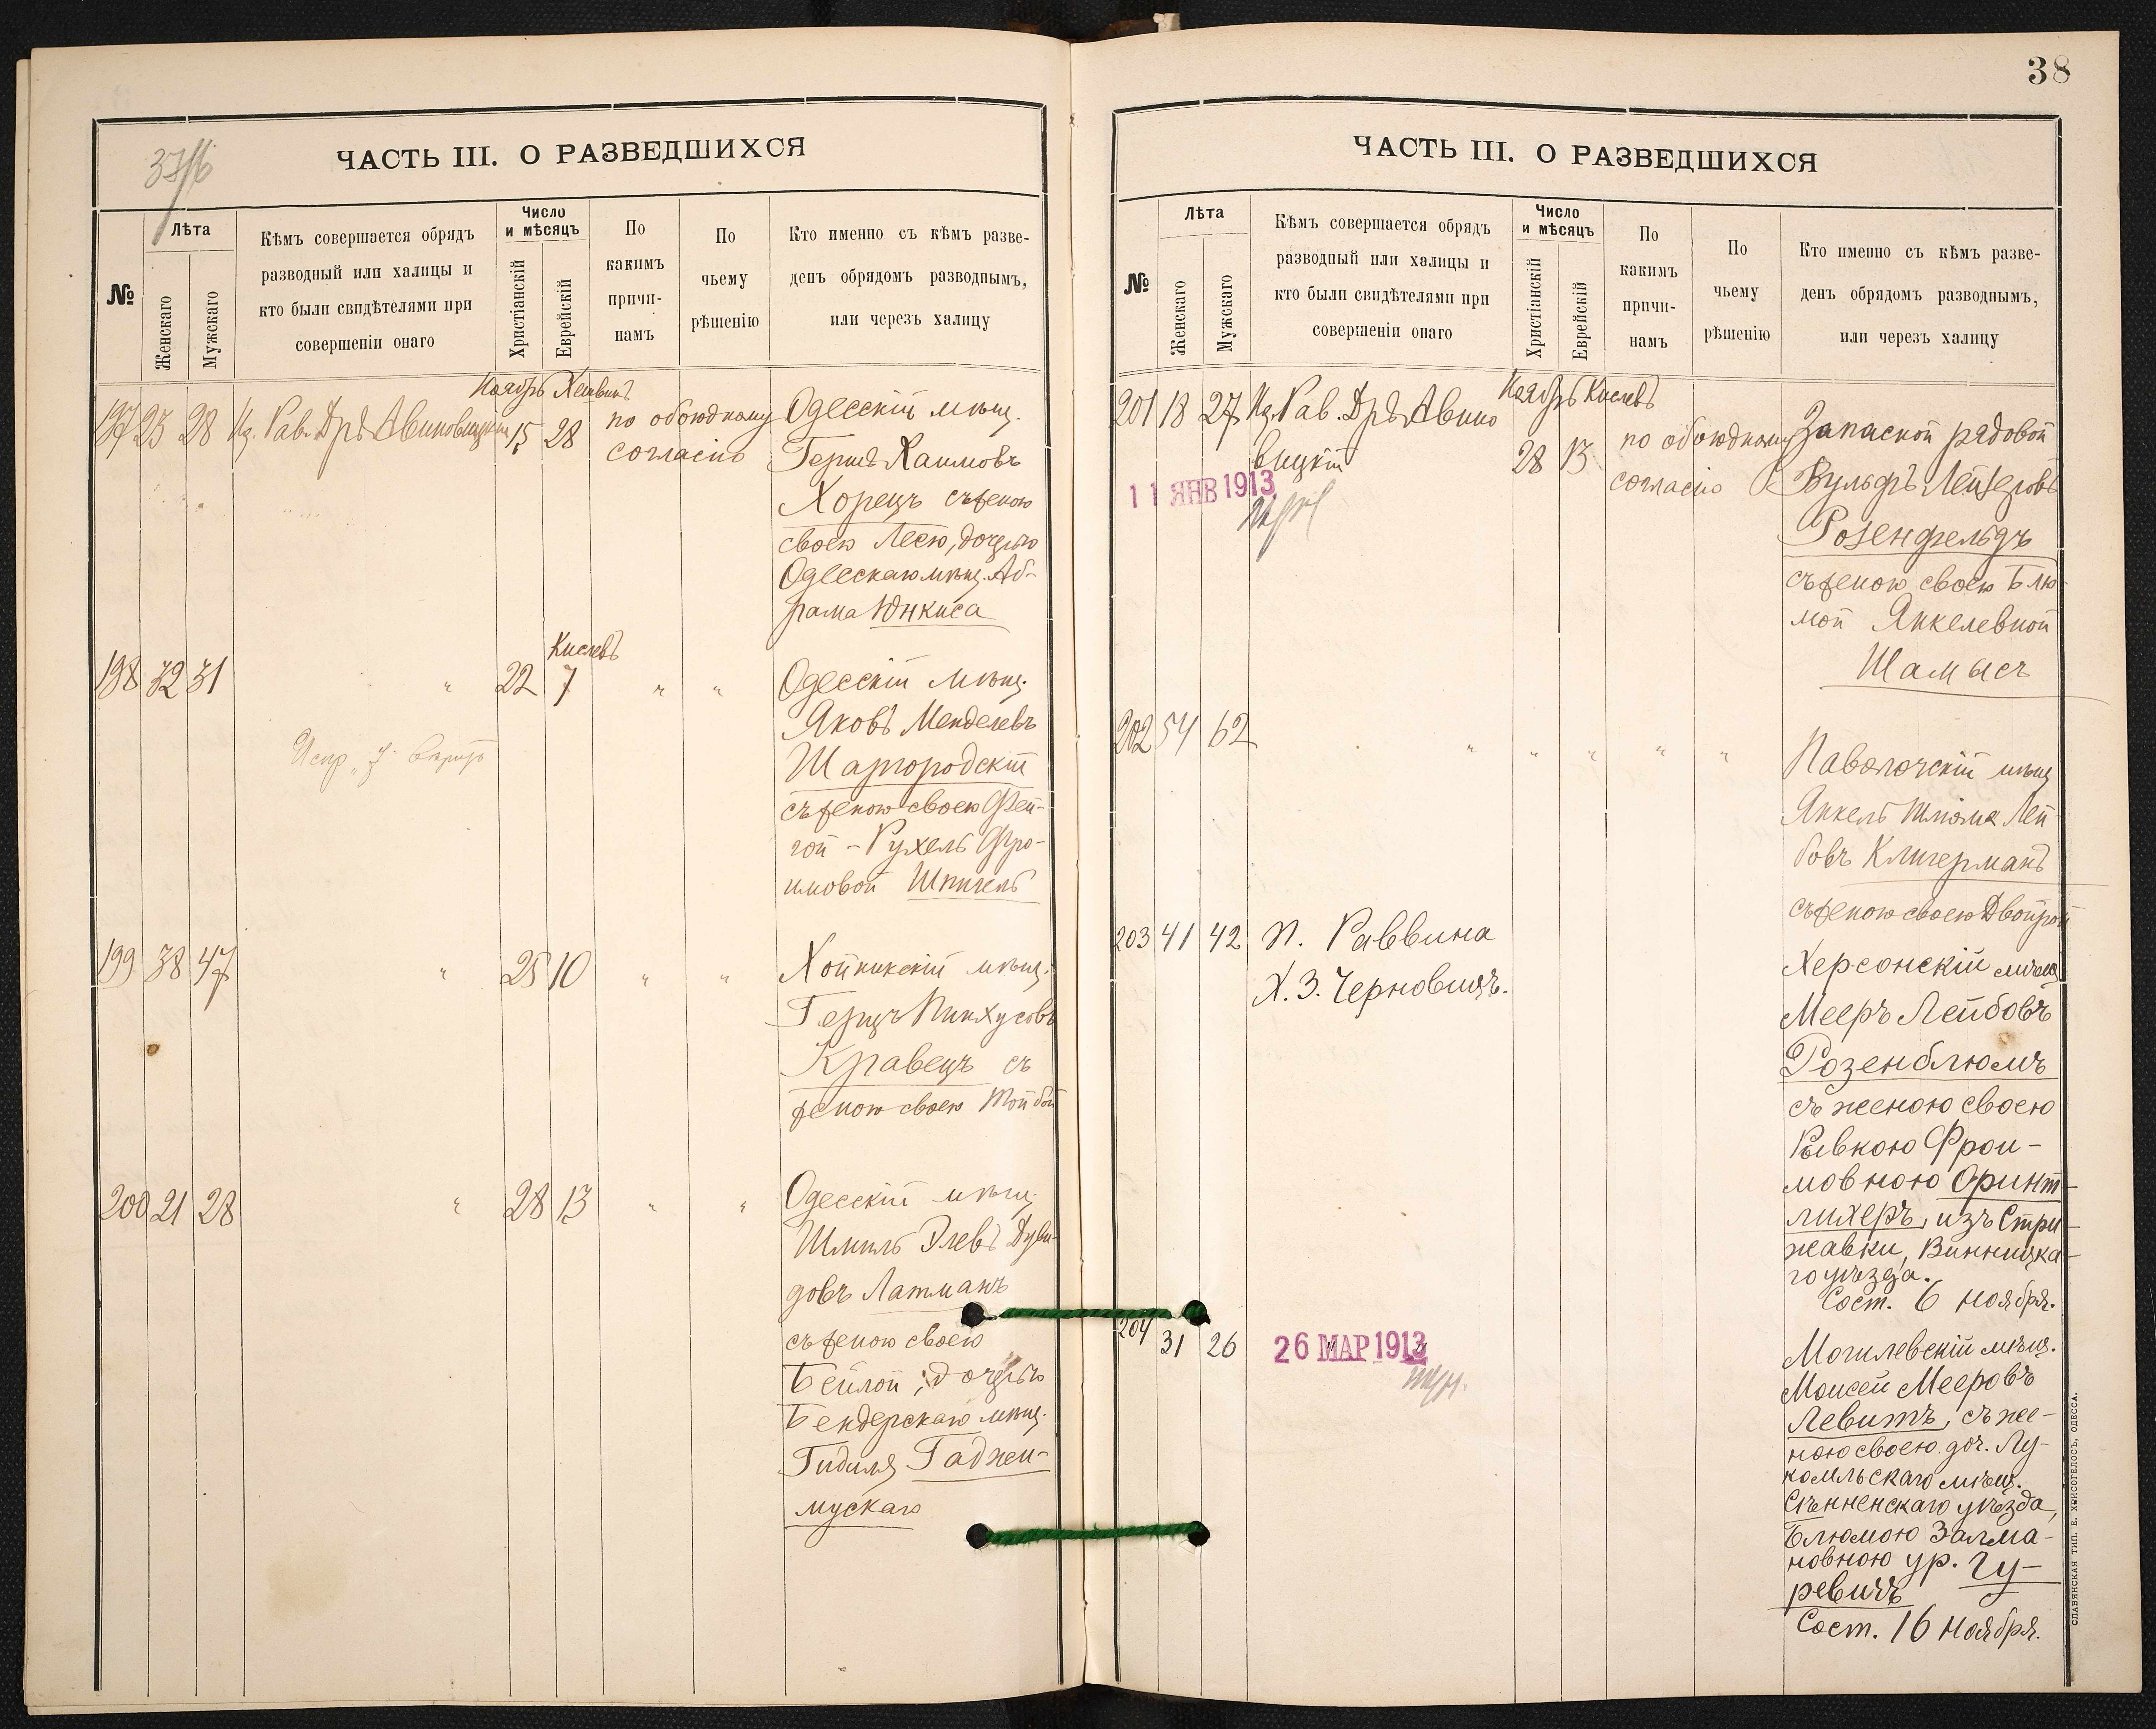 38
37/б
ЧАСТЬ III. О РАЗВЕДШИХСЯ
№
Лѣта
Женскаго
Мужскаго
Кѣмъ совершается обрядъ
разводный или халицы и
кто были свидѣтелями при
совершеніи онаго
Число
и мѣсяцъ
Христіанскій
Еврейскій
По
какимъ
причи-
намъ
По
чьему
рѣшенію
Кто именно съ кѣмъ разве-
денъ обрядомъ разводнымъ,
или черезъ халицу
Ноябрь Хешвинъ
197 23 28 Из. Рав. Дръ Авиновицкій 15 28 по обоюдному
согласію
Одесскій мѣщ.
Гершъ Хаимовъ
Хорецъ съ женою
своею Лесю, дочерью
Одесскаго мѣщ. Аб-
рама Юнкиса
Кислевъ
198 32 31 " 22 7 " "
Одесскій мѣщ.
Яковъ Менделевъ
Шаргородскій
съ женою своею Фей-
гой - Рухель Фро-
имовой Шпигель
Испр. „7"
199 38 47 " 25 10 " "
Хойникскій мѣщ.
Герцъ Пинхусовъ
Кравецъ съ
женою своею Тойбой
200 21 28 " 28 13 " "
Одесскій мѣщ.
Шмиль Элевъ Дуви-
довъ Латманъ
съ женою своею
Бейлой, дочерью
Бендерскаго мѣщ.
Гидаля Гаджи-
мускаго
ЧАСТЬ III. О РАЗВЕДШИХСЯ
№
Лѣта
Женскаго
Мужскаго
Кѣмъ совершается обрядъ
разводный или халицы и
кто были свидѣтелями при
совершеніи онаго
Число
и мѣсяцъ
Христіанскій
Еврейскій
По
какимъ
причи-
намъ
По
чьему
рѣшенію
Кто именно съ кѣмъ разве-
денъ обрядомъ разводнымъ,
или черезъ халицу
Ноябрь Кислевъ
201 18 27 Из. Рав. Дръ Авино
вицкій
28 13 по обоюдному
согласію
11 ЯНВ 1913
Запасной рядовой
Вульфъ Лейзеровъ
Розенфельдъ
съ женою своею Блю
мой Янкелевной
Шамысъ
202 54 62 " " " " "
Паволочскій мѣщ
Янкель Шлома Лей
бовъ Клигерманъ
съ женою своею Двойрой
203 41 42 П. Раввина
Х. З. Черновицъ.
Херсонскій мѣщ
Мееръ Лейбовъ
Розенблюмъ
съ женою своею
Рывкою Фрои-
мовною Финт-
лихеръ, изъ Стри-
жавки, Винницка-
го уѣзда.
Сост. 6 ноября.
204 31 26 "
26 МАР 1913
Могилевскій мѣщ.
Моисей Мееровъ
Левитъ, съ же-
ною своею доч. Лу-
комльскаго мѣщ.
Сѣнненскаго уѣзда,
Блюмою Залма-
новною ур. Гу-
ревичъ
Сост. 16 ноября.
СЛАВЯНСКАЯ ТИП. Е. ХРИСОГЕЛОСЪ, ОДЕССА.